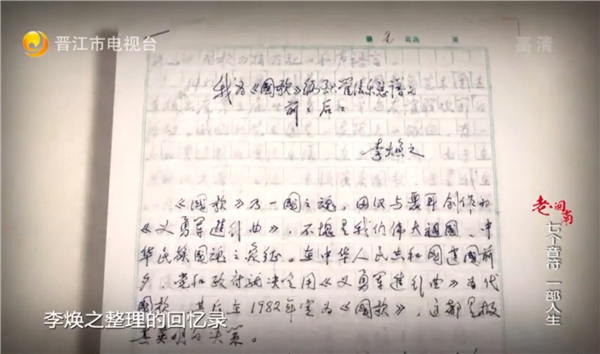 晋江市电视台
高清
第 页
我为《国歌》编配管弦乐总谱的
前前后后
李焕之
《国歌》乃一国之魂，田汉与聂耳创作的
《义勇军进行曲》，不愧是我们伟大祖国、中
华民族国魂之象征。在中华人民共和国建国前
夕，党和政府就决定用《义勇军进行曲》为代
国歌，其后在1982年定为《国歌》，这都是极
其英明的决策。
老·闽南
七个音符 一部人生
李焕之整理的回忆录